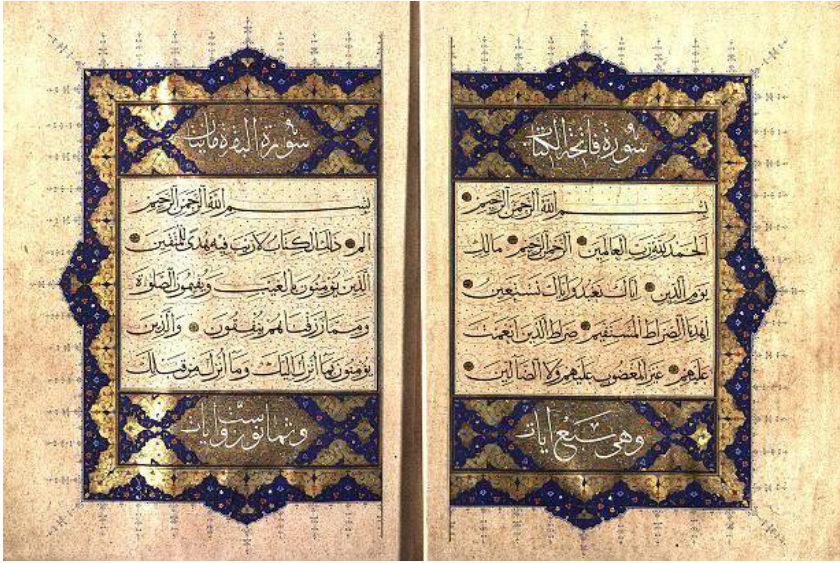 سورة فاتحة الكتاب
بسم الله الرحمن الرحيم
الحمد لله رب العالمين الرحمن الرحيم مالك
يوم الدين اياك نعبد واياك نستعين
اهدنا الصراط المستقيم صراط الذين انعمت
عليهم غير المغضوب عليهم ولا الضالين
وهى سبع ايات
سورة البقرة مايتان
بسم الله الرحمن الرحيم
الم ذلك الكتاب لا ريب فيه هدى للمتقين
الذين يؤمنون بالغيب ويقيمون الصلوة
ومما رزقناهم ينفقون والذين
يؤمنون بما انزل اليك وما انزل من قبلك
وثمانون وست ايات